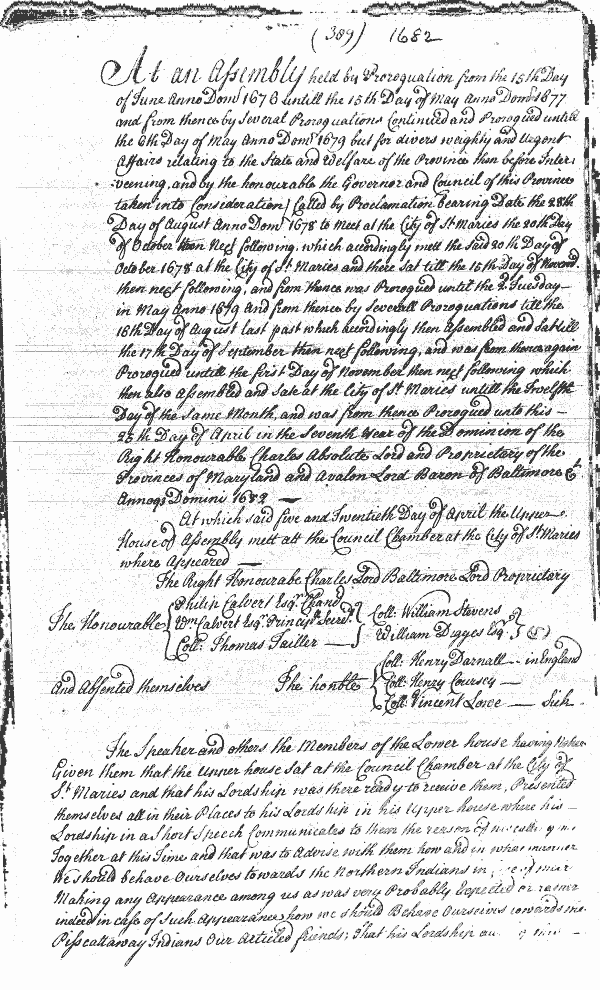 (389) 1682
At an Assembly held by Proroguation from the 15th Day
of June Anno Domi 1676 untill the 15th Day of May Anno Domi 1677
and from thence by Several Prorogations Continued and Prorogued untill
the 6th Day of May Anno Domi 1679 but for divers weighty and Urgent
Affairs relating to the State and Welfare of the Province then before Inter-
vening, and by the honourable the Governor and Council of this Province
taken into Consideration) Called by Proclamation bearing Date the 28th
Day of August Anno Domi 1678 to Meet at the City of St Maries the 20th Day
of October then Next following, which accordingly mett the said 20th Day of
October 1678 at the City of St Maries and there sat till the 15th Day of Novemb.
then next following, and from thence was Prorogued until the 2d Tuesday
in May Anno 1679 And from thence by Severall Prorogations till the
16th Day of August last past which accordingly then Assembled and Sat till
the 17th Day of September then next following, and was from thence again
Prorogued untill the first Day of November then next following which
then also Assembled and sate at the City of St Maries untill the Twelfth
Day of the same Month, and was from thence Prorogued unto this
25th Day of April in the Seventh Year of the Dominion of the
Right Honourable Charles Absolute Lord and Proprietary of the
Provinces of Maryland and Avalon Lord Baron of Baltimore &c
Annoqs Domini 1682 —
At which said five and Twentieth Day of April the Upper
House of Assembly mett att the Council Chamber at the City of St Maries
where Appeared —
The Right Honourabe Charles Lord Baltimore Lord Proprietary
The Honourable { Philip Calvert Esqr Chanc
Wm Calvert Esqr Principl Secry.
Coll: Thomas Tailler — } { Coll: William Stevens
William Digges Esqr } (5)
And Absented themselves The honble { Coll: Henry Darnall — in England
Coll: Henry Coursey —
Coll: Vincent Lowe — Sick
The Speaker and others the Members of the Lower house having Notice
Given them that the Upper house Sat at the Council Chamber at the City of
St Maries and that his Lordship was there ready to receive them, Presented
themselves all in their Places to his Lordship in his Upper house where his
Lordship in a Short Speech Communicates to them the reason of
Together at this Time and that was to Advise with them how and in what manner
We should behave Ourselves towards the Northern Indians in
Making any Appearance among us as was very Probably Expected or rather
indeed in case of Such Appearance, how we should Behave Ourselves towards
Piscattaway Indians Our Articled friends; That his Lordship